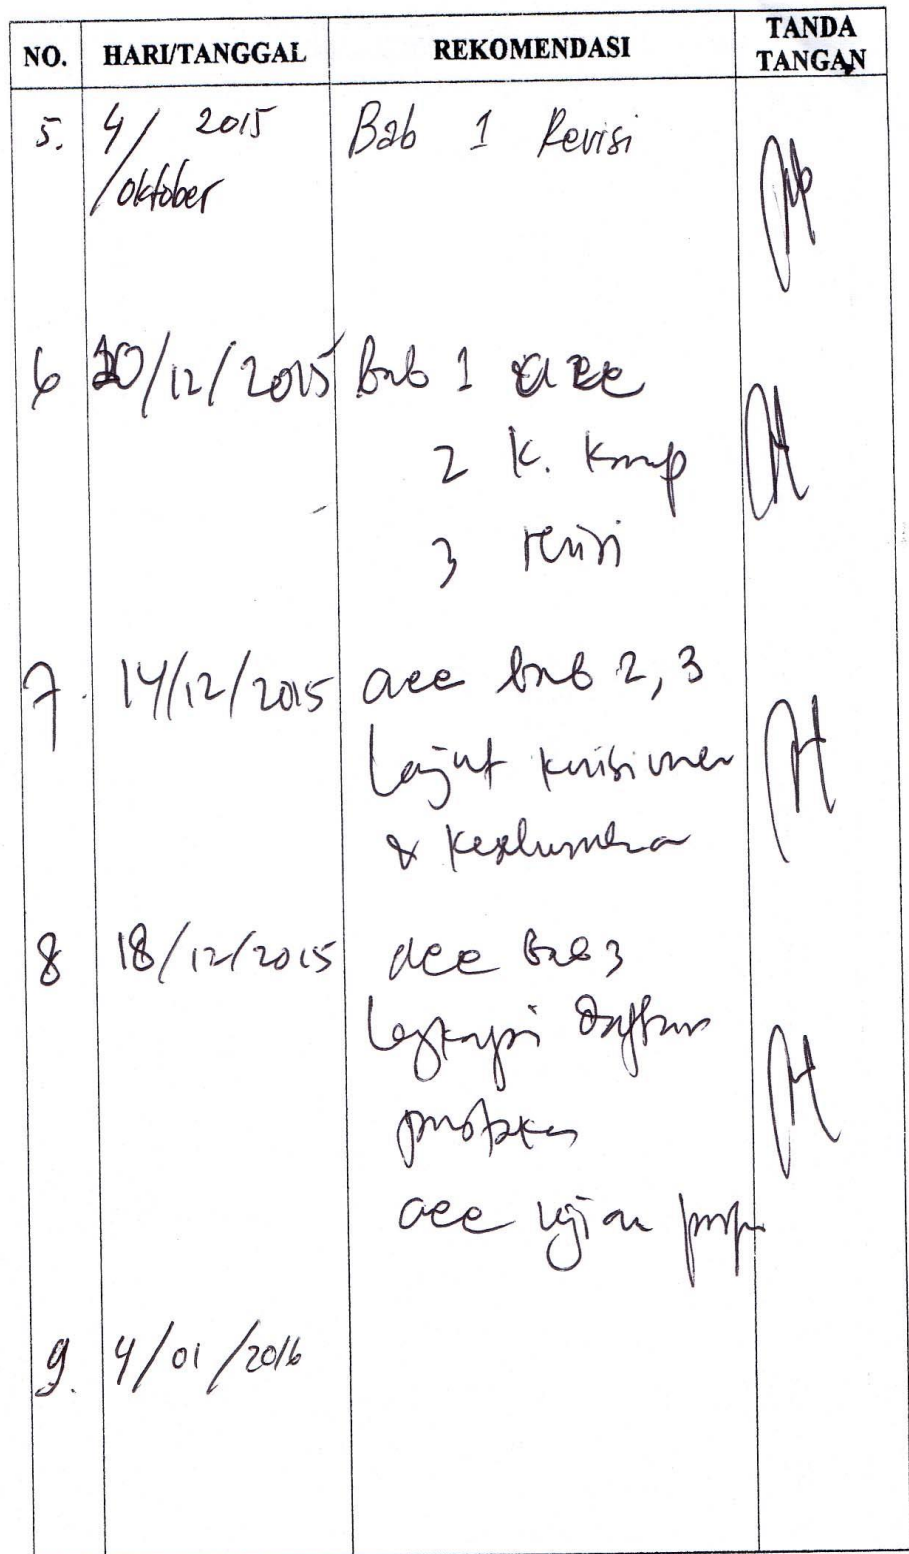 NO. HARI/TANGGAL REKOMENDASI TANDA TANGAN
5. 4/ 2015 Bab 1 Revisi
/oktober
6 /12/2015 Bab 1 acc
2 K.
3 revisi
7. 14/12/2015 acc bab 2, 3
Lanjut kuisioner
&
8 18/12/2015 acc Bab 3
Lengkapi Daftar
pustaka
acc ujian
9. 4/01/2016